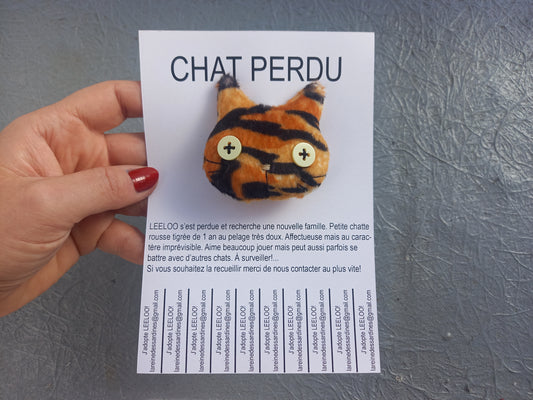 CHAT PERDU
LEELOO s'est perdue et recherche une nouvelle famille. Petite chatte
rousse tigrée de 1 an au pelage très doux. Affectueuse mais au carac-
tère imprévisible. Aime beaucoup jouer mais peut aussi parfois se
battre avec d'autres chats. À surveiller!...
Si vous souhaitez la recueillir merci de nous contacter au plus vite!
J'adopte LEELOO!
lareinedessardines@gmail.com
J'adopte LEELOO!
lareinedessardines@gmail.com
J'adopte LEELOO!
lareinedessardines@gmail.com
J'adopte LEELOO!
lareinedessardines@gmail.com
J'adopte LEELOO!
lareinedessardines@gmail.com
J'adopte LEELOO!
lareinedessardines@gmail.com
J'adopte LEELOO!
lareinedessardines@gmail.com
J'adopte LEELOO!
lareinedessardines@gmail.com
J'adopte LEELOO!
lareinedessardines@gmail.com